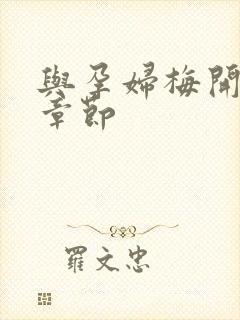 與孕婦梅開
章節
羅文忠